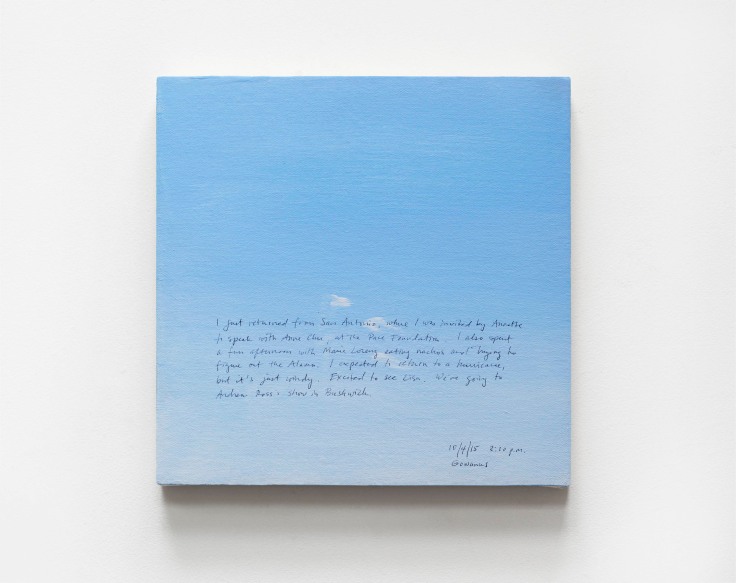 I just returned from San Antonio, where I was invited by Annette
to speak with Anne Chu, at the Pace Foundation. I also spent
a fun afternoon with Marie Lorenz eating nachos and trying to
figure out the Alamo. I expected to return to a hurricane,
but it's just windy. Excited to see Lisa. We're going to
Andrew Ross's show in Bushwick.
10/4/15 2:20 p.m.
Gowanus